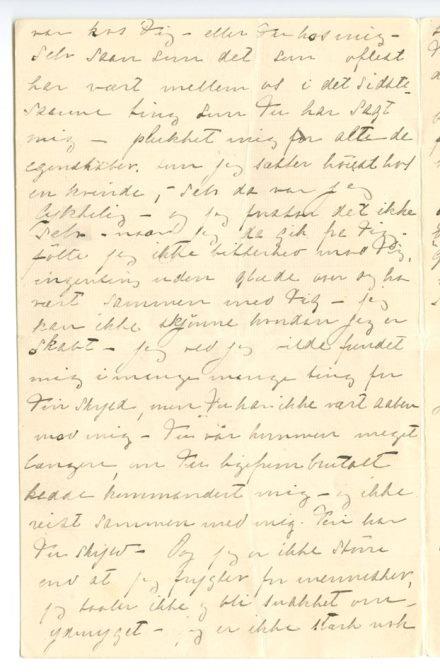 var hos Dig – eller Du hos mig –
Selv saan som det som oftest
har vært mellem os i det sidste
saanne ting som Du har sagt
mig – plukket mig for alle de
egenskaber, som jeg sætter höiest hos
en kvinde, – selv da var jeg
lykkelig – og jeg forstod det ikke
Selv naar jeg da gik fra Dig –
følte jeg ikke bitterhed mod Dig,
ingenting uden glæde over og ha
vært sammen med Dig – jeg
kan ikke skjönne hvordan jeg er
skabt – jeg ved jeg ilde fundet
mig i mange mange ting for
Din skyld, men Du har ikke vært aaben
mod mig – Du var kommen meget
længere, om Du ligefrem brutalt
hadde kommandert mig – og ikke
reist sammen med mig. Du har
Du skyld – Og jeg er ikke större
end at jeg frygter for mennesker,
jeg taaler ikke og bli snakket om –
ydmyget – jeg er ikke stærk nok